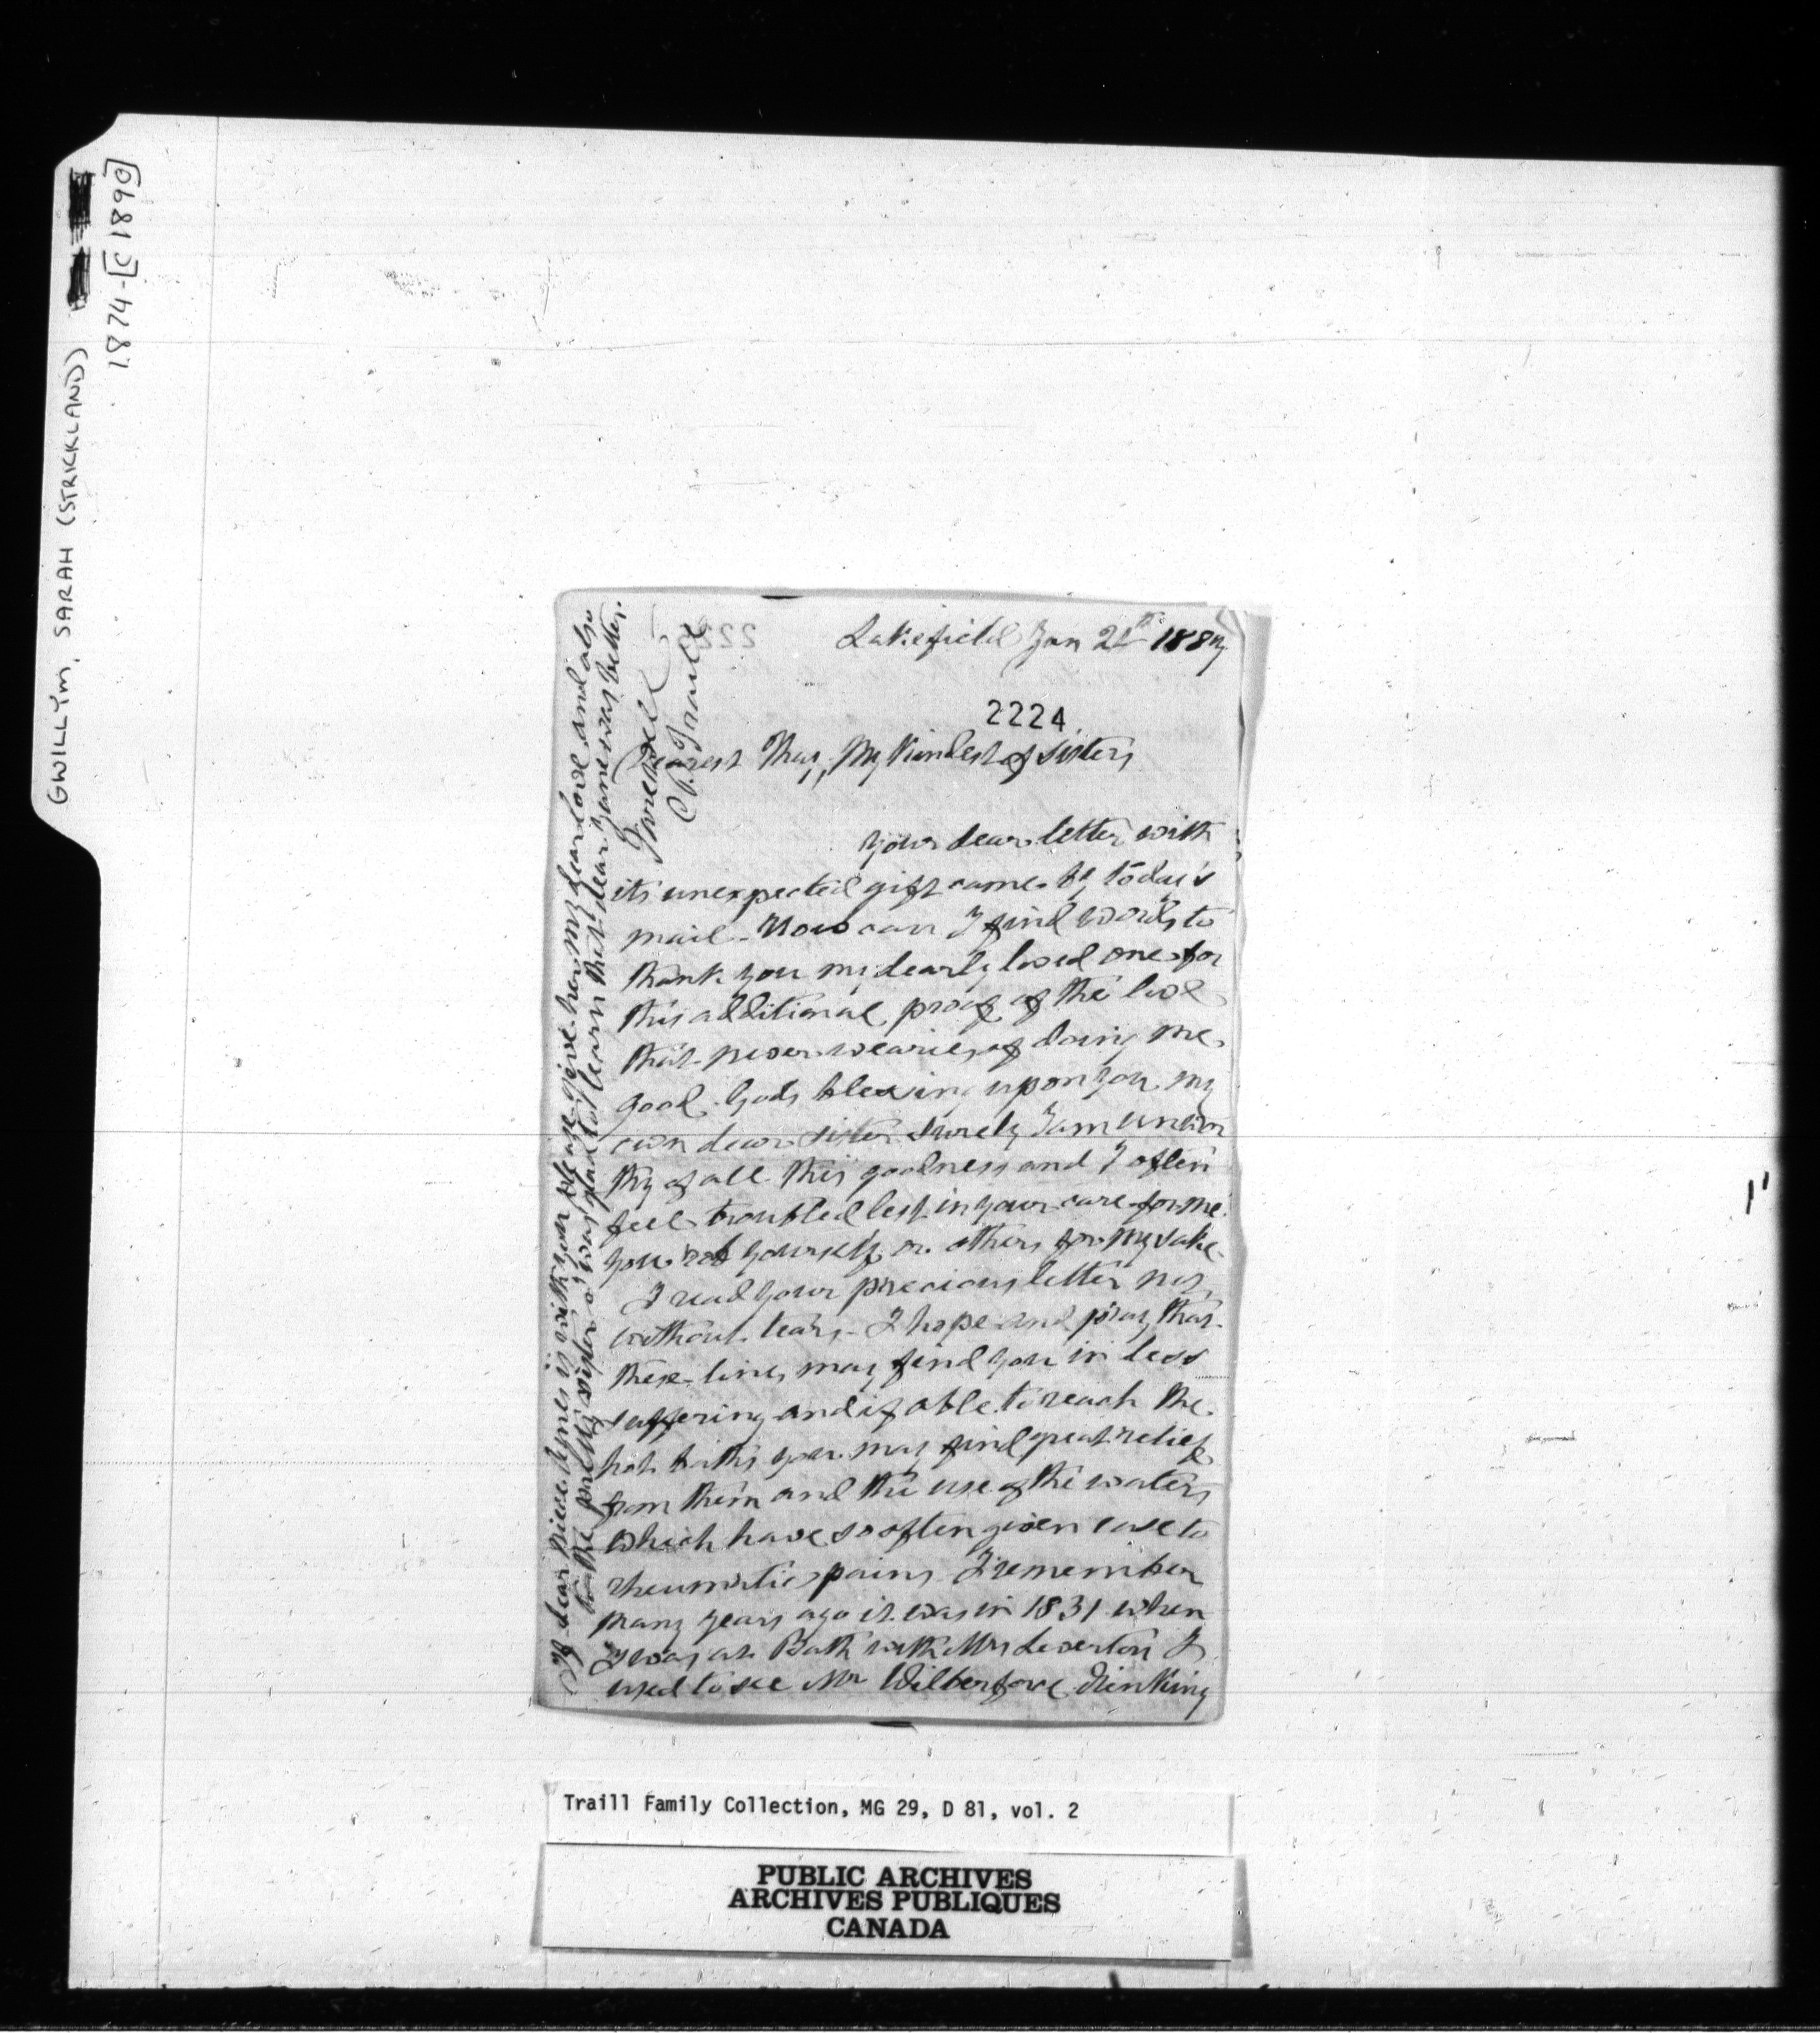 GWILLYM, SARAH (STRICKLAND)
1874-[C1890]
Lakefield Jan 21th 1889
2224
Dearest Thay, My Kindest of Sisters
your dear letter with
its unexpected gift came by today's
mail - How can I find words to
thank you my dearly loved one for
this additional proof of the love
that never wearies of doing me
good. Gods blessing upon you my
own dear sister surely I am unwor
thy of all this goodness and I often
feel troubled lest in your care for me
you rob yourself or others for my sake -
I read your precious letter not
without tears - I hope and pray that
these lines may find you in less
suffering and if able to reach the
hot baths you may find great relief
from them and the use of the waters
which have so often given ease to
rheumatic pains I remember
many years ago it was in 1831 when
I was at Bath with Mrs Leverton I
used to see Mr Wilberforce drinking
If dear niece Agnes is with you please give her my dear love and also
to the pretty sister I was glad to learn that dear Jane was better.
Farewell
C P. Traill
Traill Family Collection, MG 29, D 81, vol. 2
PUBLIC ARCHIVES
ARCHIVES PUBLIQUES
CANADA